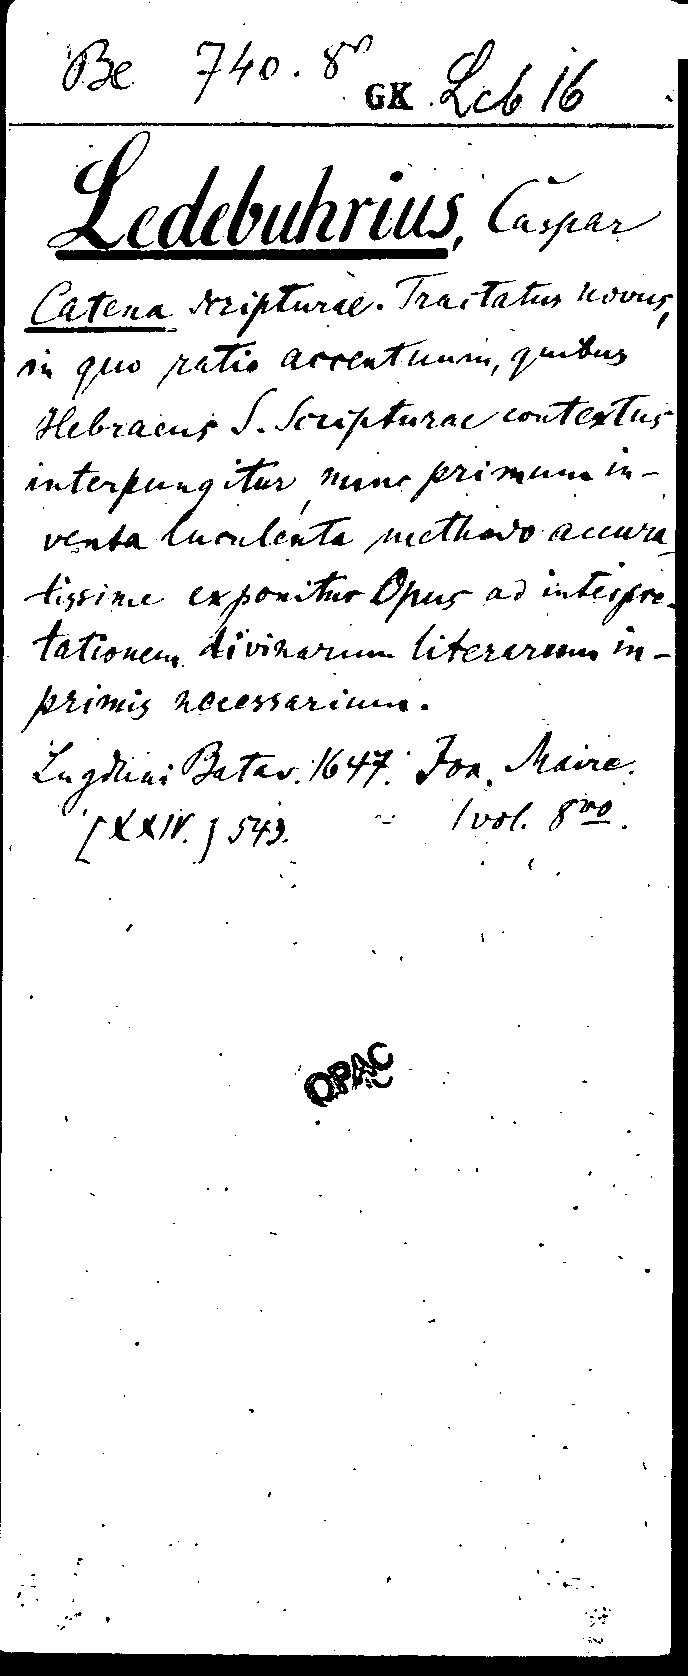 Be 740. 8º
GK Leb 16
Ledebuhrius, Caspar
Catena scripturae. Tractatus novus,
in quo ratio accentuum, quibus
Hebraeus S. Scripturae contextus
interpungitur, nunc primum in-
venta luculenta methodo accura-
tissime exponitur Opus ad interpre-
tationem divinarum literarum in-
primis necessarium.
Lugduni Batav. 1647. Joa. Maire.
[XXIV.] 543. 1 vol. 8vo.
OPAC